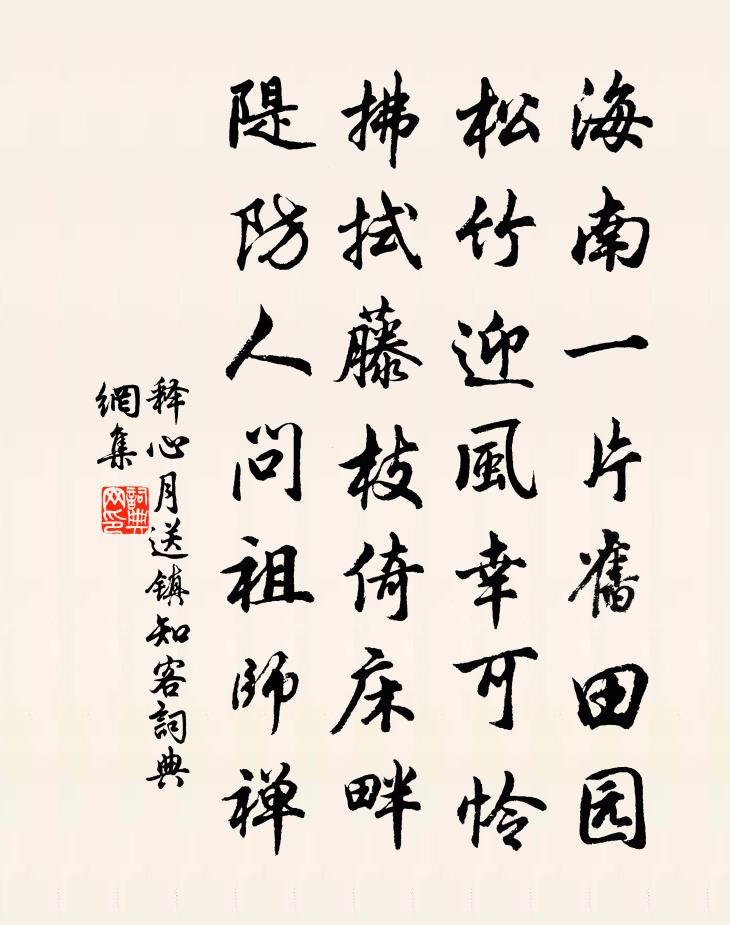 海南一片舊田园
松竹迎風幸可怜
拂拭藤枝倚床畔
隄防人问祖師禅
释心月送镇知客詞典
網集
詞典
网印